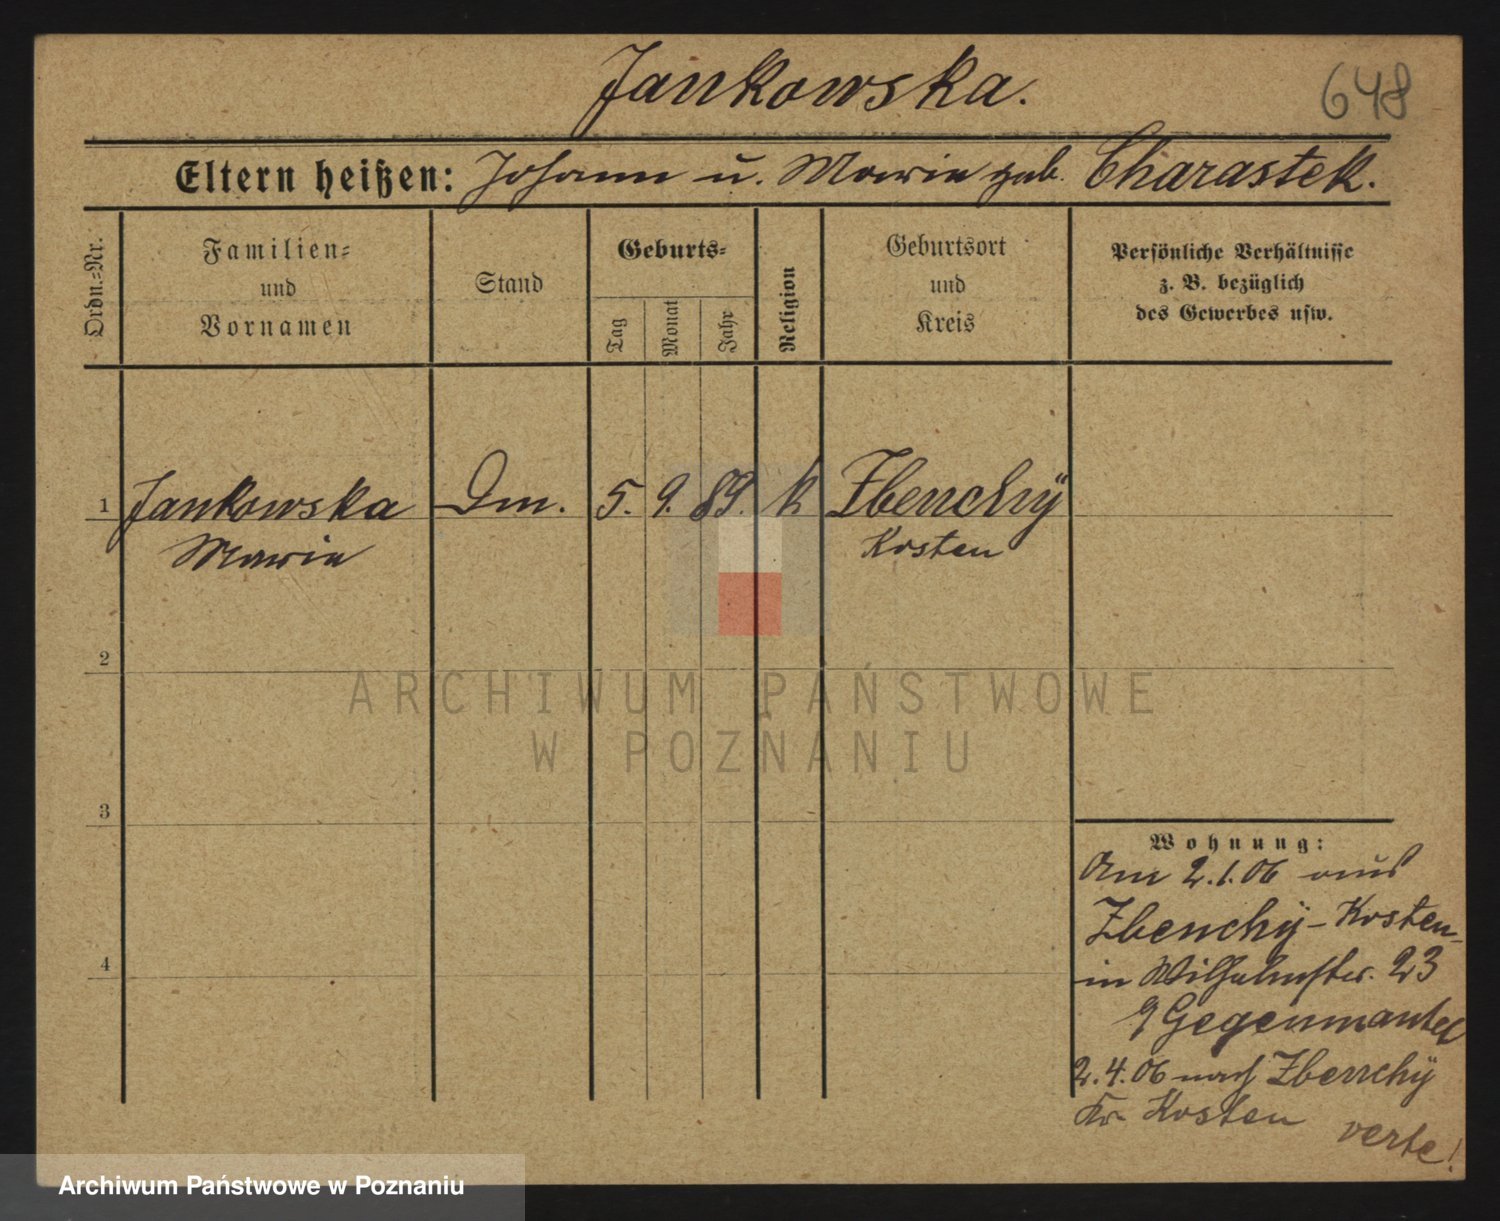 Jankowska.
648
Eltern heißen: Johann u. Maria geb. Charastek.
Ordn.=Nr.
Familien=
und
Vornamen
Stand
Geburts=
Tag
Monat
Jahr
Religion
Geburtsort
und
Kreis
Persönliche Verhältnisse
z. B. bezüglich
des Gewerbes usw.
1 Jankowska Dm. 5. 9. 89. k Zbenchÿ
Maria Kosten
2
3
4
Wohnung:
Am 2.1.06 aus
Zbenchÿ-Kosten
in Wilhelmstr. 23
Gegenmantel
2.4.06 nach Zbenchÿ
Kr. Kosten
verte!
ARCHIWUM PAŃSTWOWE
W POZNANIU
Archiwum Państwowe w Poznaniu